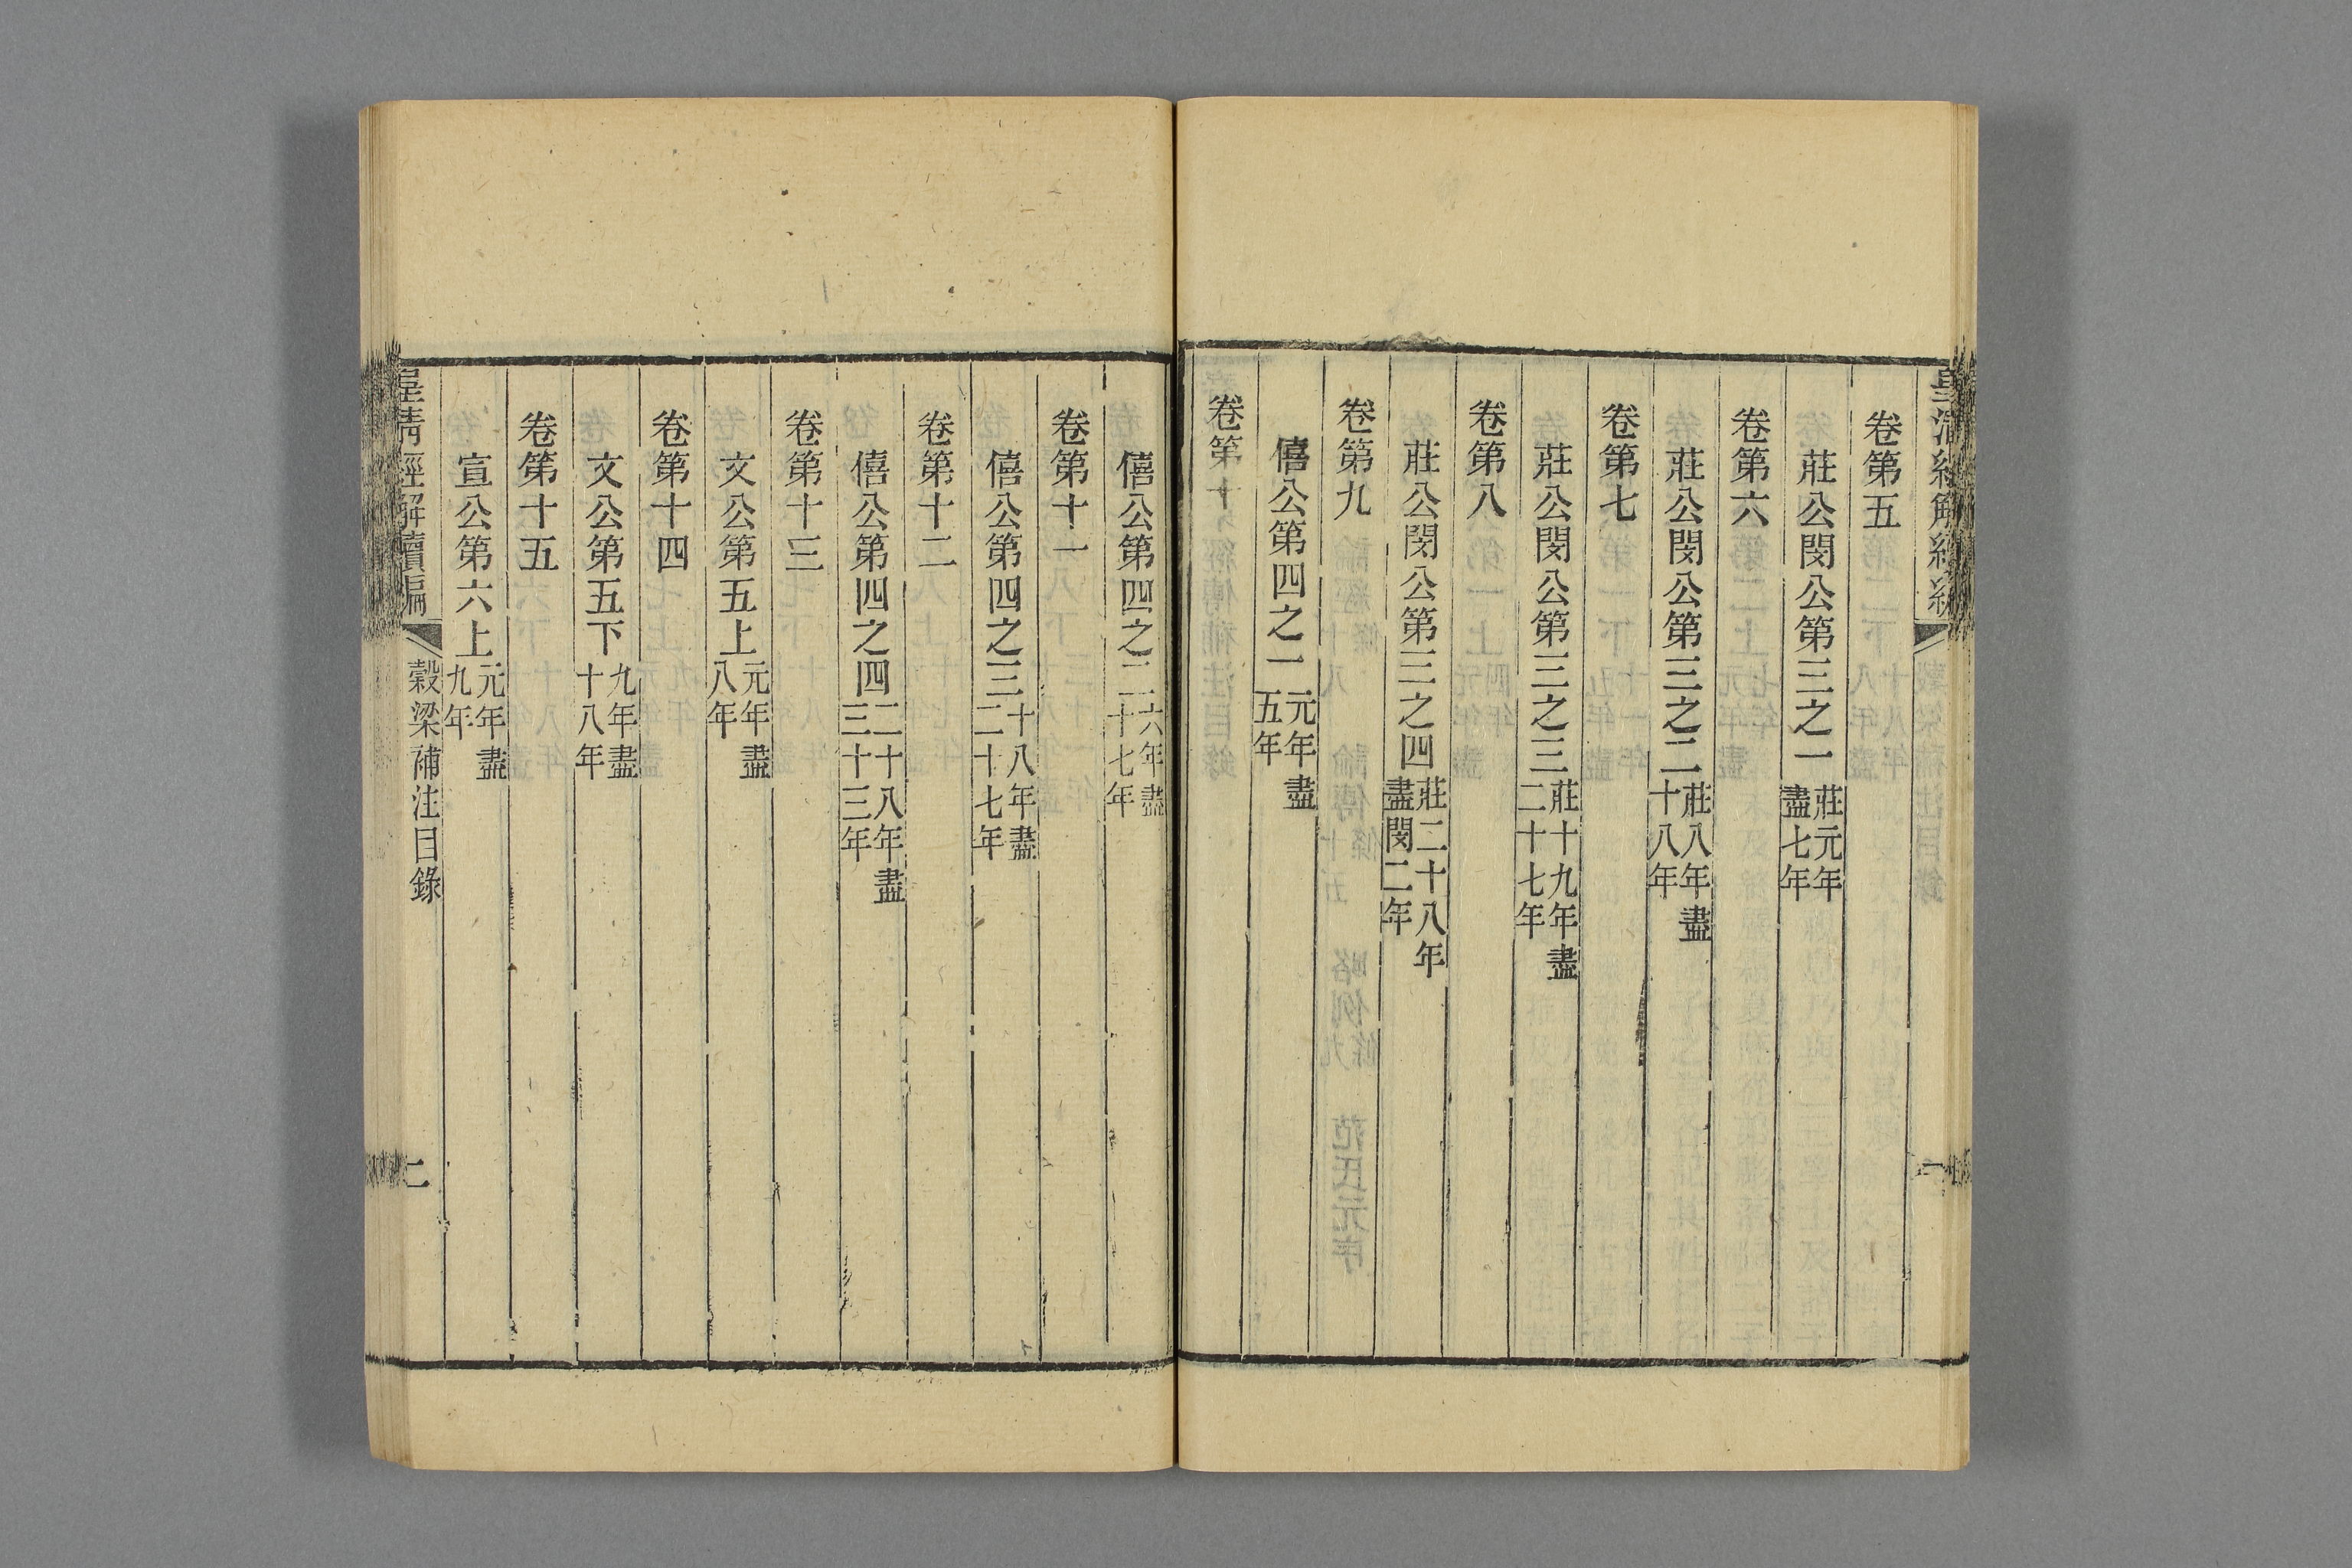 卷第五
莊公閔公第三之一莊元年盡七年
卷第六
莊公閔公第三之二莊八年盡十八年
卷第七
莊公閔公第三之三莊十九年盡二十七年
卷第八
莊公閔公第三之四莊二十八年盡閔二年
卷第九
僖公第四之一元年盡五年
卷第十
僖公第四之二六年盡十七年
卷第十一
僖公第四之三十八年盡二十七年
卷第十二
僖公第四之四二十八年盡三十三年
卷第十三
文公第五上元年盡八年
卷第十四
文公第五下九年盡十八年
卷第十五
宣公第六上元年盡九年
皇清經解續編 穀梁補注目錄 二